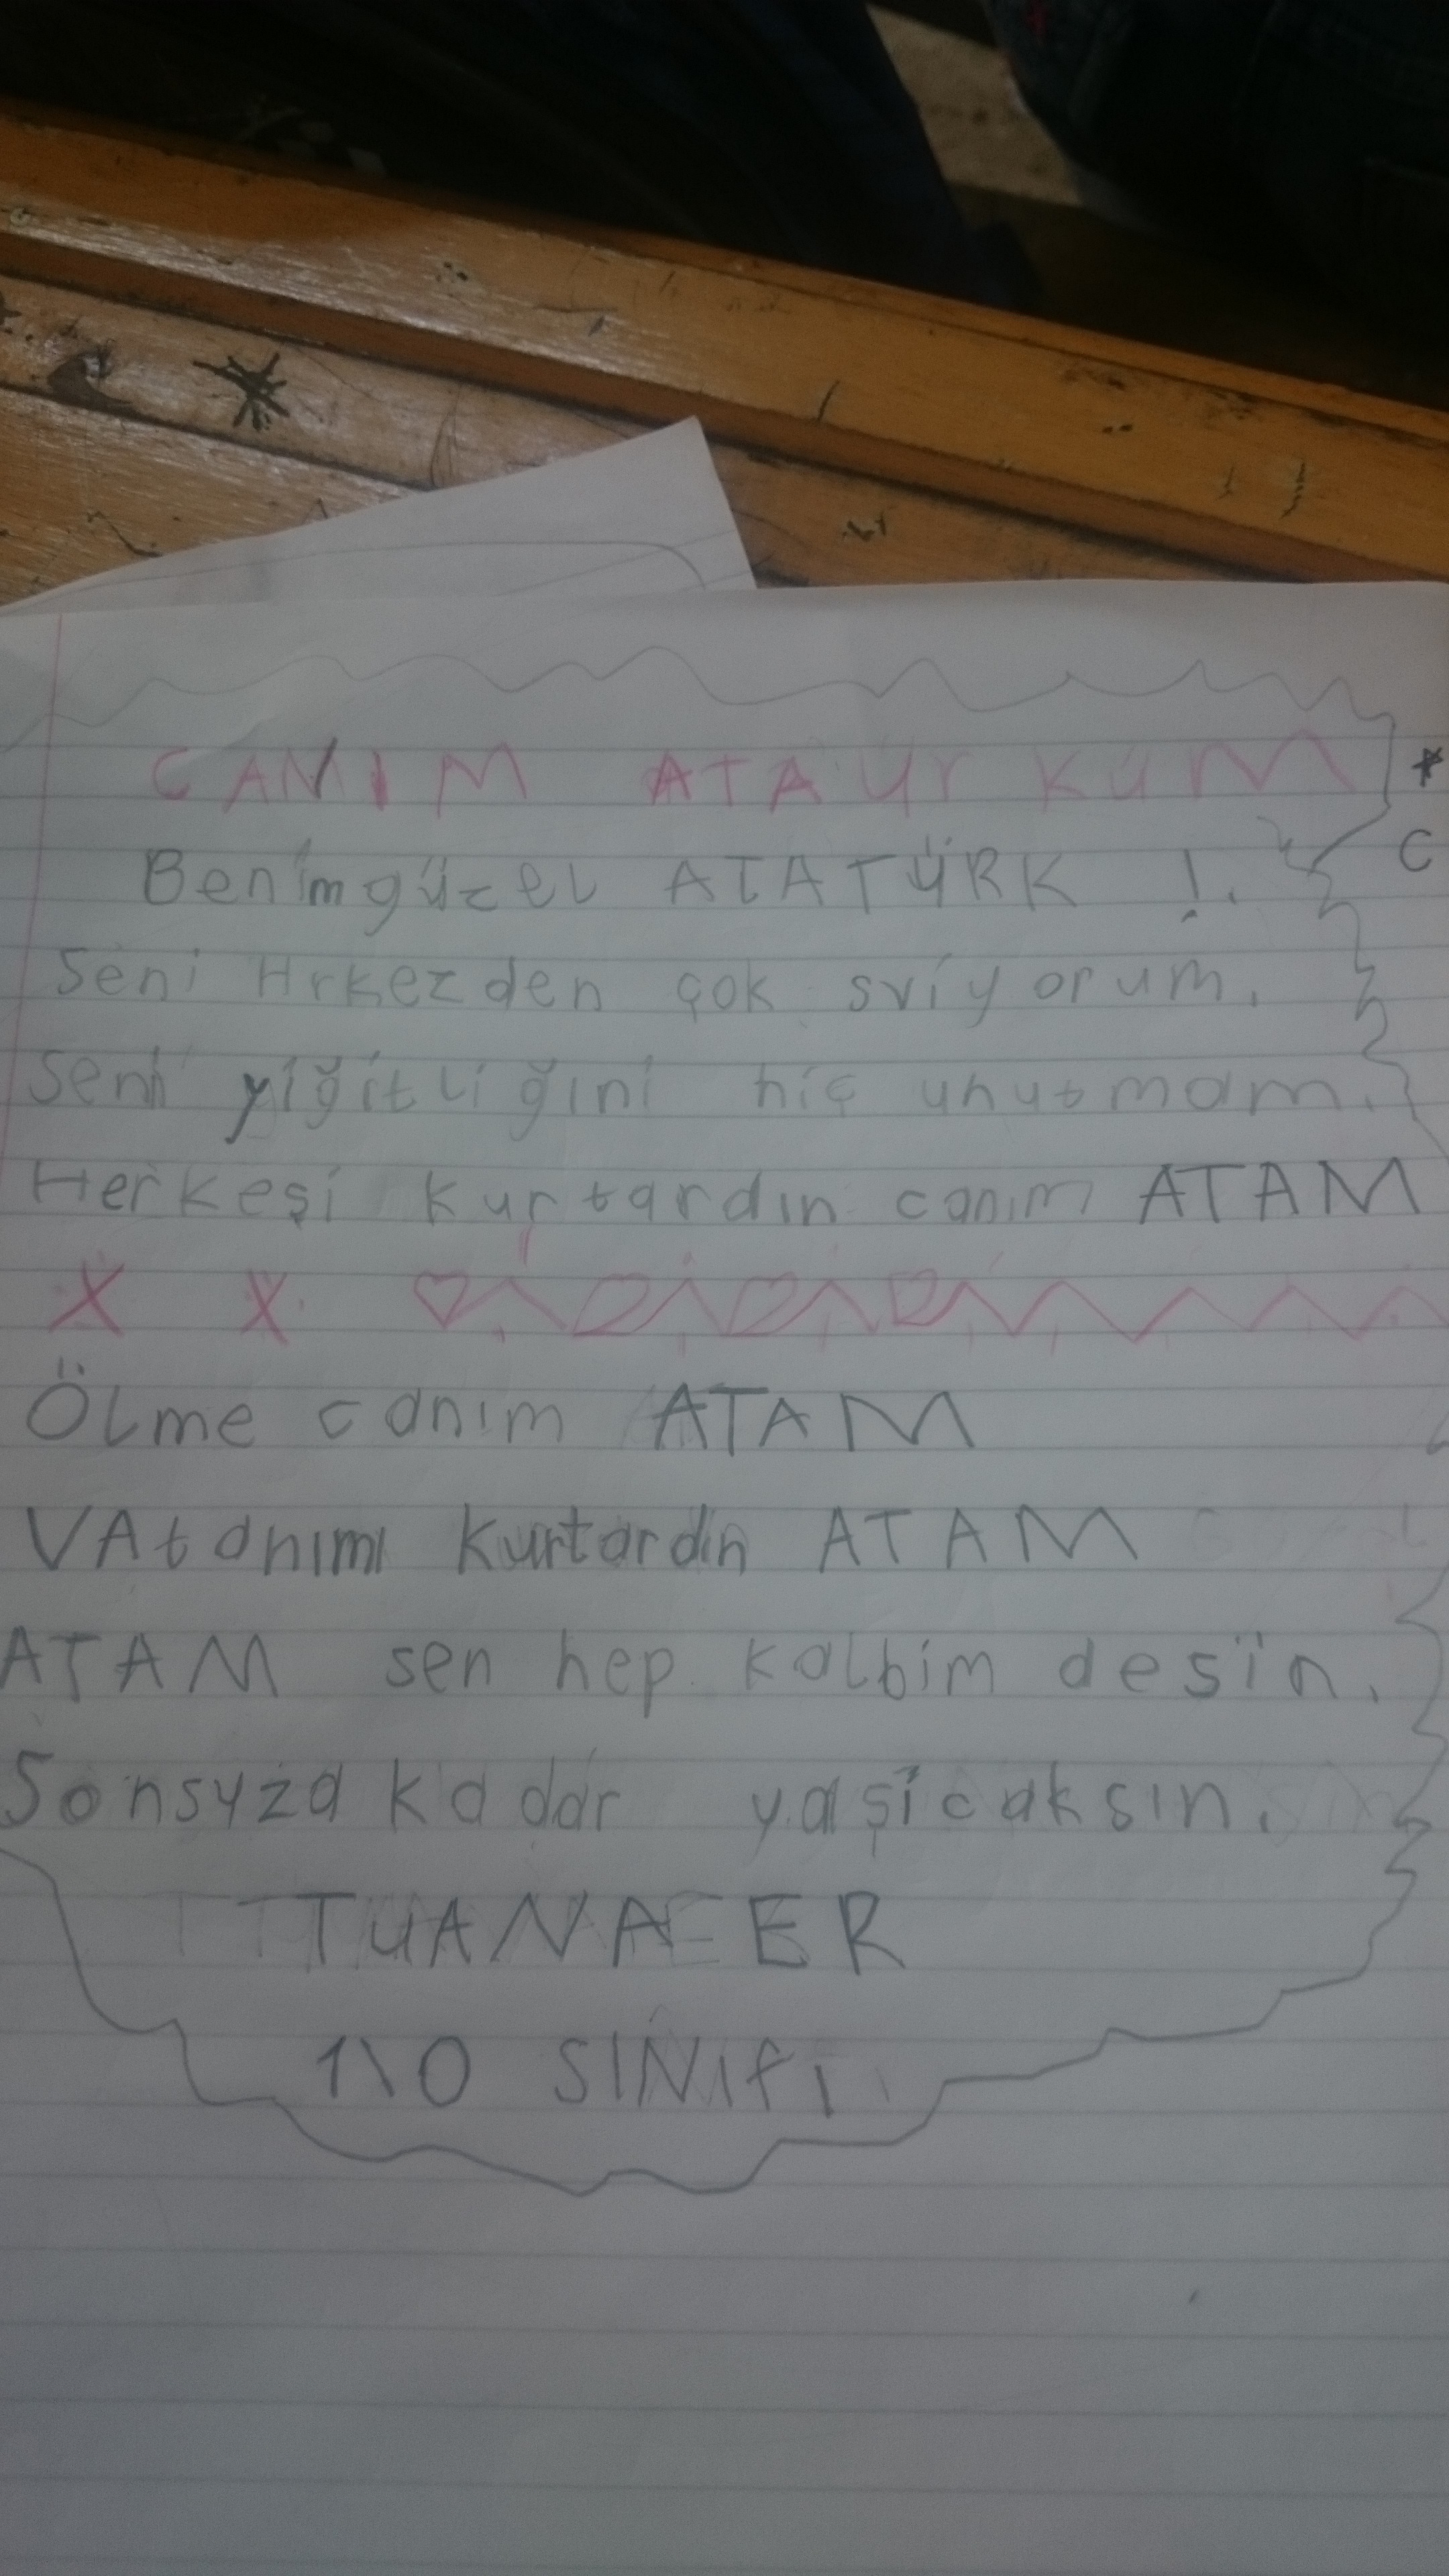 CANIM ATAUrKUM
Benim güzel ATATÜRK !.
Seni Hrkezden çok sviyorum.
Seni yiğitliğini hiç unutmam.
Herkeşi kurtardın canım ATAM
Ölme canım ATAM
VAtanımı kurtardın ATAM
ATAM sen hep kalbim desin.
Sonsyza kadar yaşicaksın.
TUANA ER
1\O SINIfI